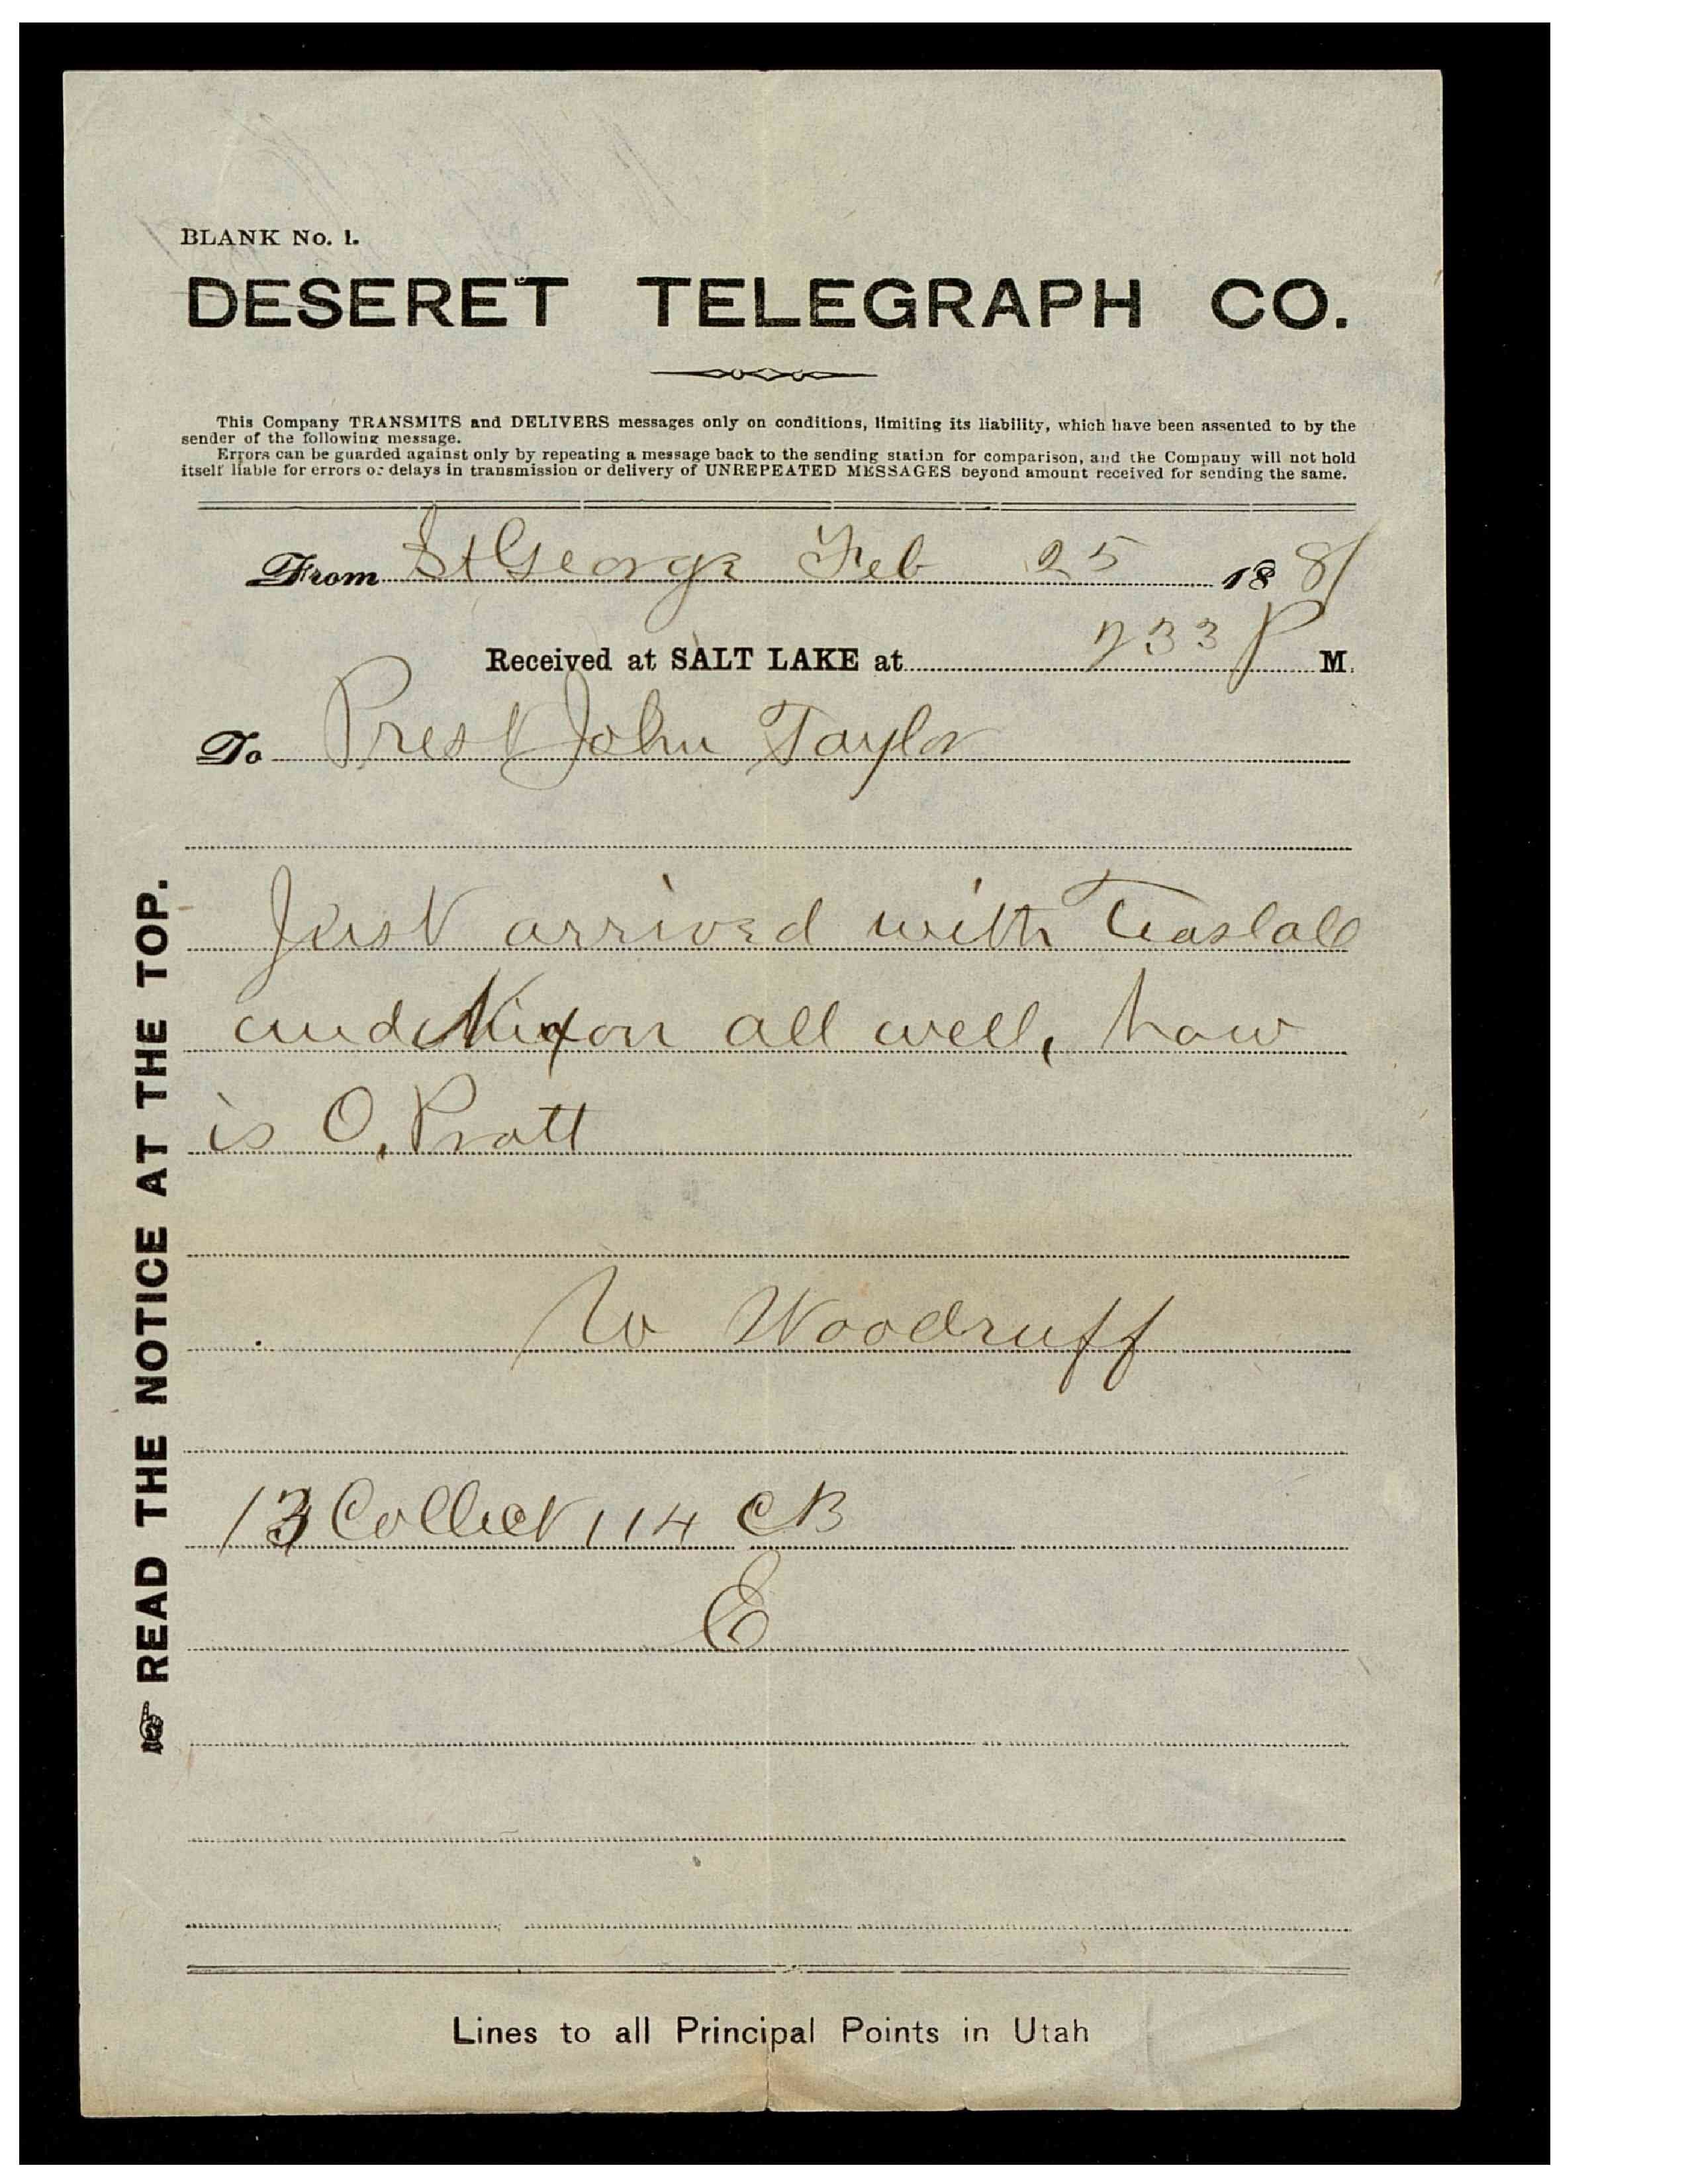 BLANK No. 1.
DESERET TELEGRAPH CO.
This Company TRANSMITS and DELIVERS messages only on conditions, limiting its liability, which have been assented to by the
sender of the following message.
Errors can be guarded against only by repeating a message back to the sending station for comparison, and the Company will not hold
itself liable for errors or delays in transmission or delivery of UNREPEATED MESSAGES beyond amount received for sending the same.
From St George Feb 25 1881
Received at SALT LAKE at 233 P M.
To Prest John Taylor
Just arrived with Teaslall
and Nixon all well, how
is O. Pratt
W Woodruff
13 Collect 114 CB
E
☞ READ THE NOTICE AT THE TOP.
Lines to all Principal Points in Utah